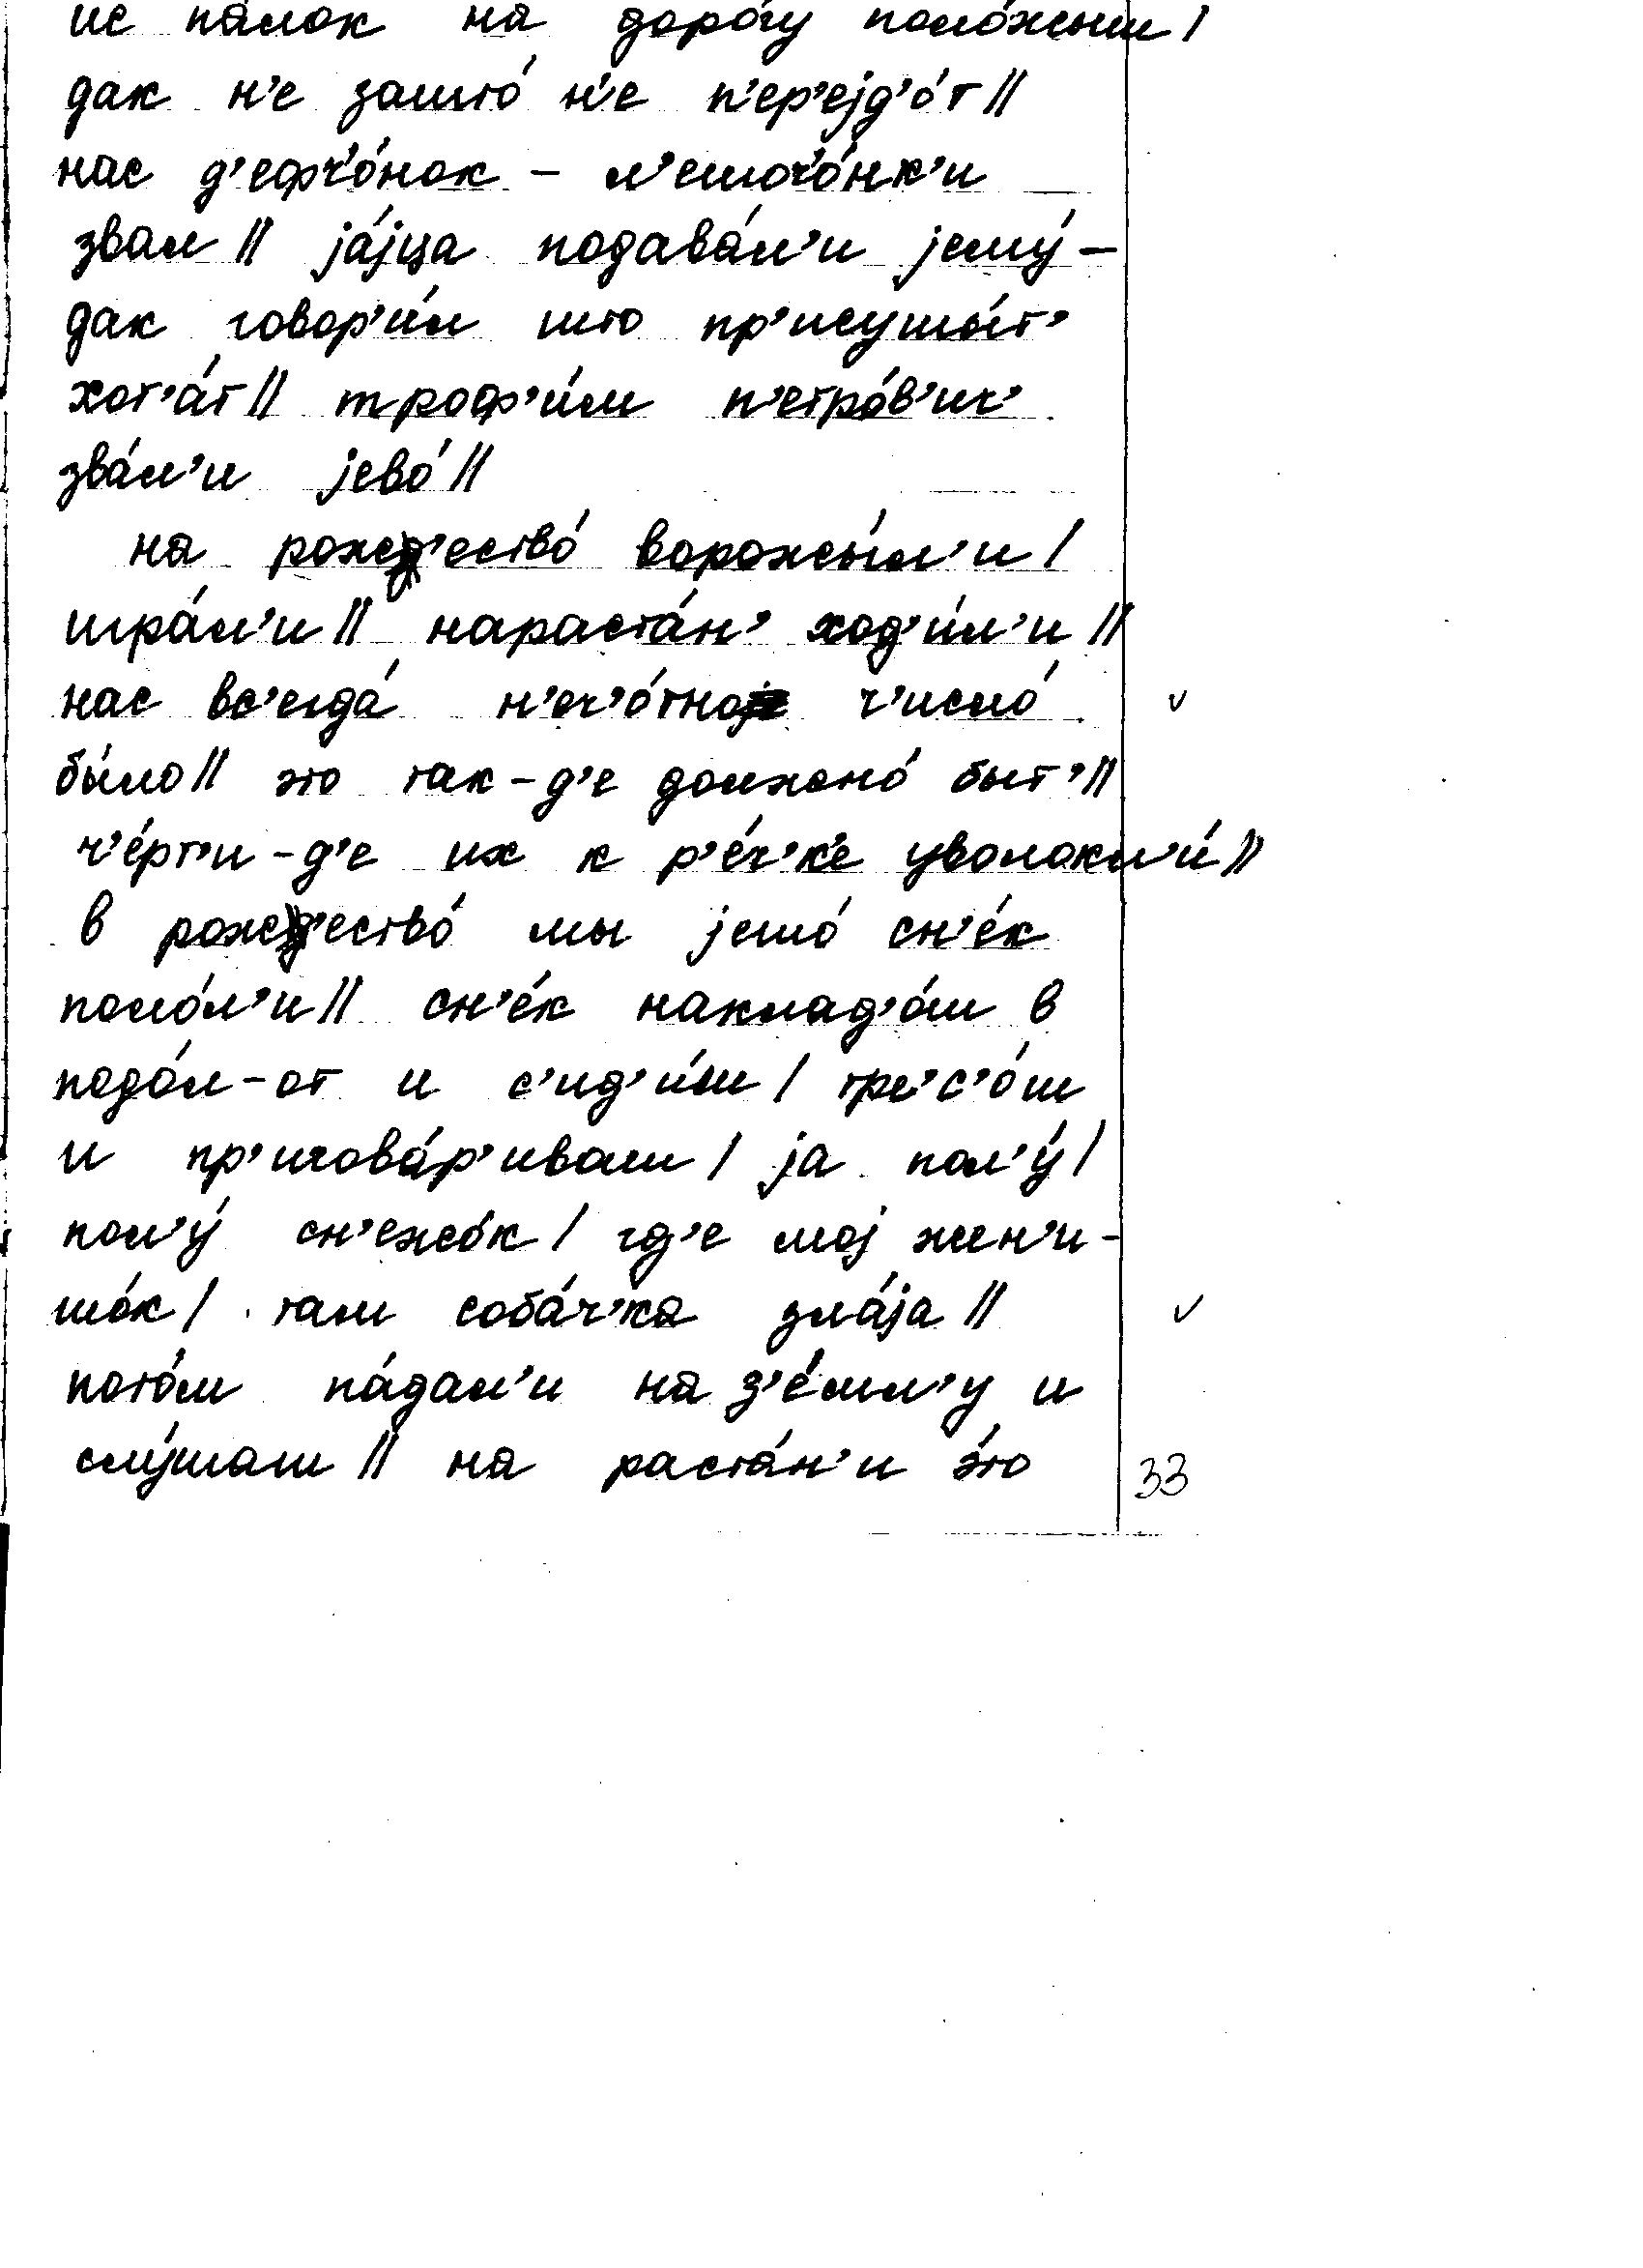 ис па́лок на доро́гу поло́жыш /
дак н'е зашто́ н'е п'ер'ејд'о́т //
нас д'ефч'о́нок – л'ешоч'о́нк'и
звал // ја́јца подава́л'и јему́ –
дак говор'и́л што пр'исушы́т'
хот'а́т // трофи́м п'етро́в'ич'
зва́л'и јево́ //
на рожд'ество́ ворожы́л'и /
игра́л'и // нараста́н' ход'и́л'и //
нас вс'егда́ н'еч'о́тној ч'исло́
бы́ло // это так-д'е должно́ быт' //
ч'е́рт'и-д'е их к р'е́ч'к'е уволокл'и́ //
в рожд'ество́ мы јешо́ сн'е́к
поло́л'и // сн'е́к наклад'о́ш в
подо́л-от и с'ид'и́ш / тре'с'о́ш
и пр'игова́р'иваш / ја пол'у́ /
пол'у́ сн'ежо́к / гд'е мој жен'и-
шо́к / там соба́ч'ка зла́ја //
пото́м па́дал'и на з'е́мл'у и
слу́шаш // на раста́н'и э́то
33